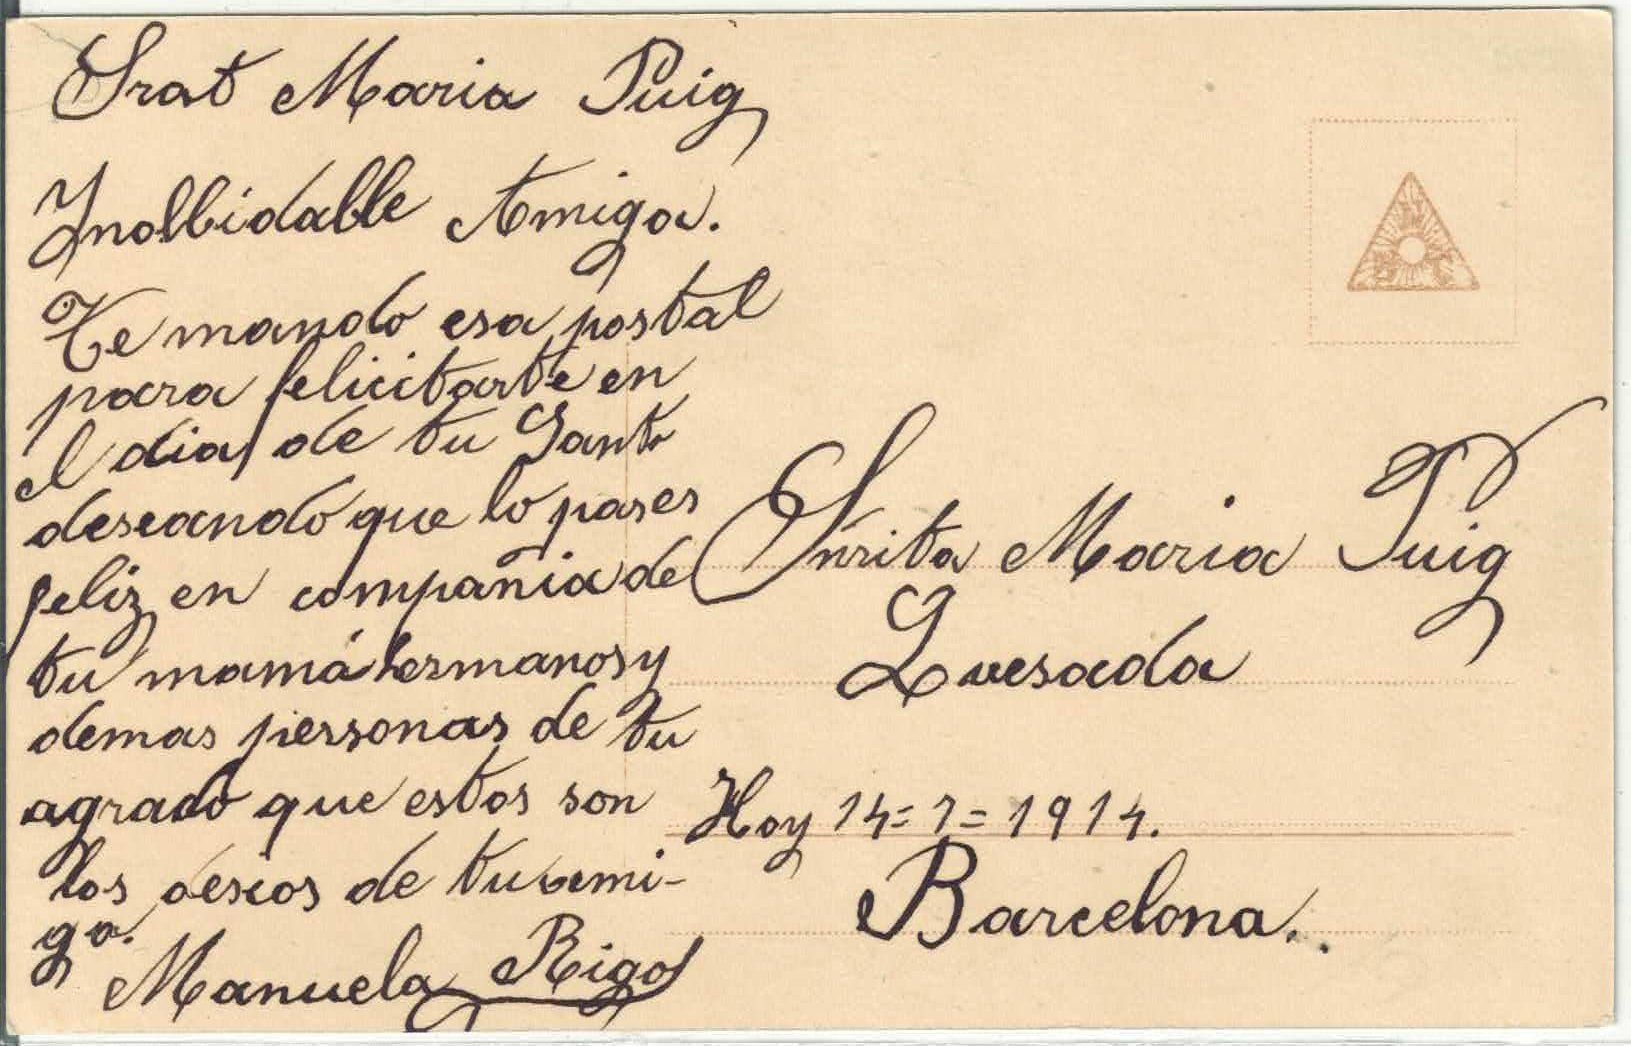 Srat Maria Puig
Inolbidable Amiga.
Te mando esa postal
para felicitarte en
el dia de tu Santo
deseando que lo pases
feliz en compañia de
tu mamá hermanos y
demas personas de tu
agrado que estos son
los deseos de tu ami-
ga.
Manuela Rigol
Snrita Maria Puig
Quesada
Hoy 14=7=1914.
Barcelona.